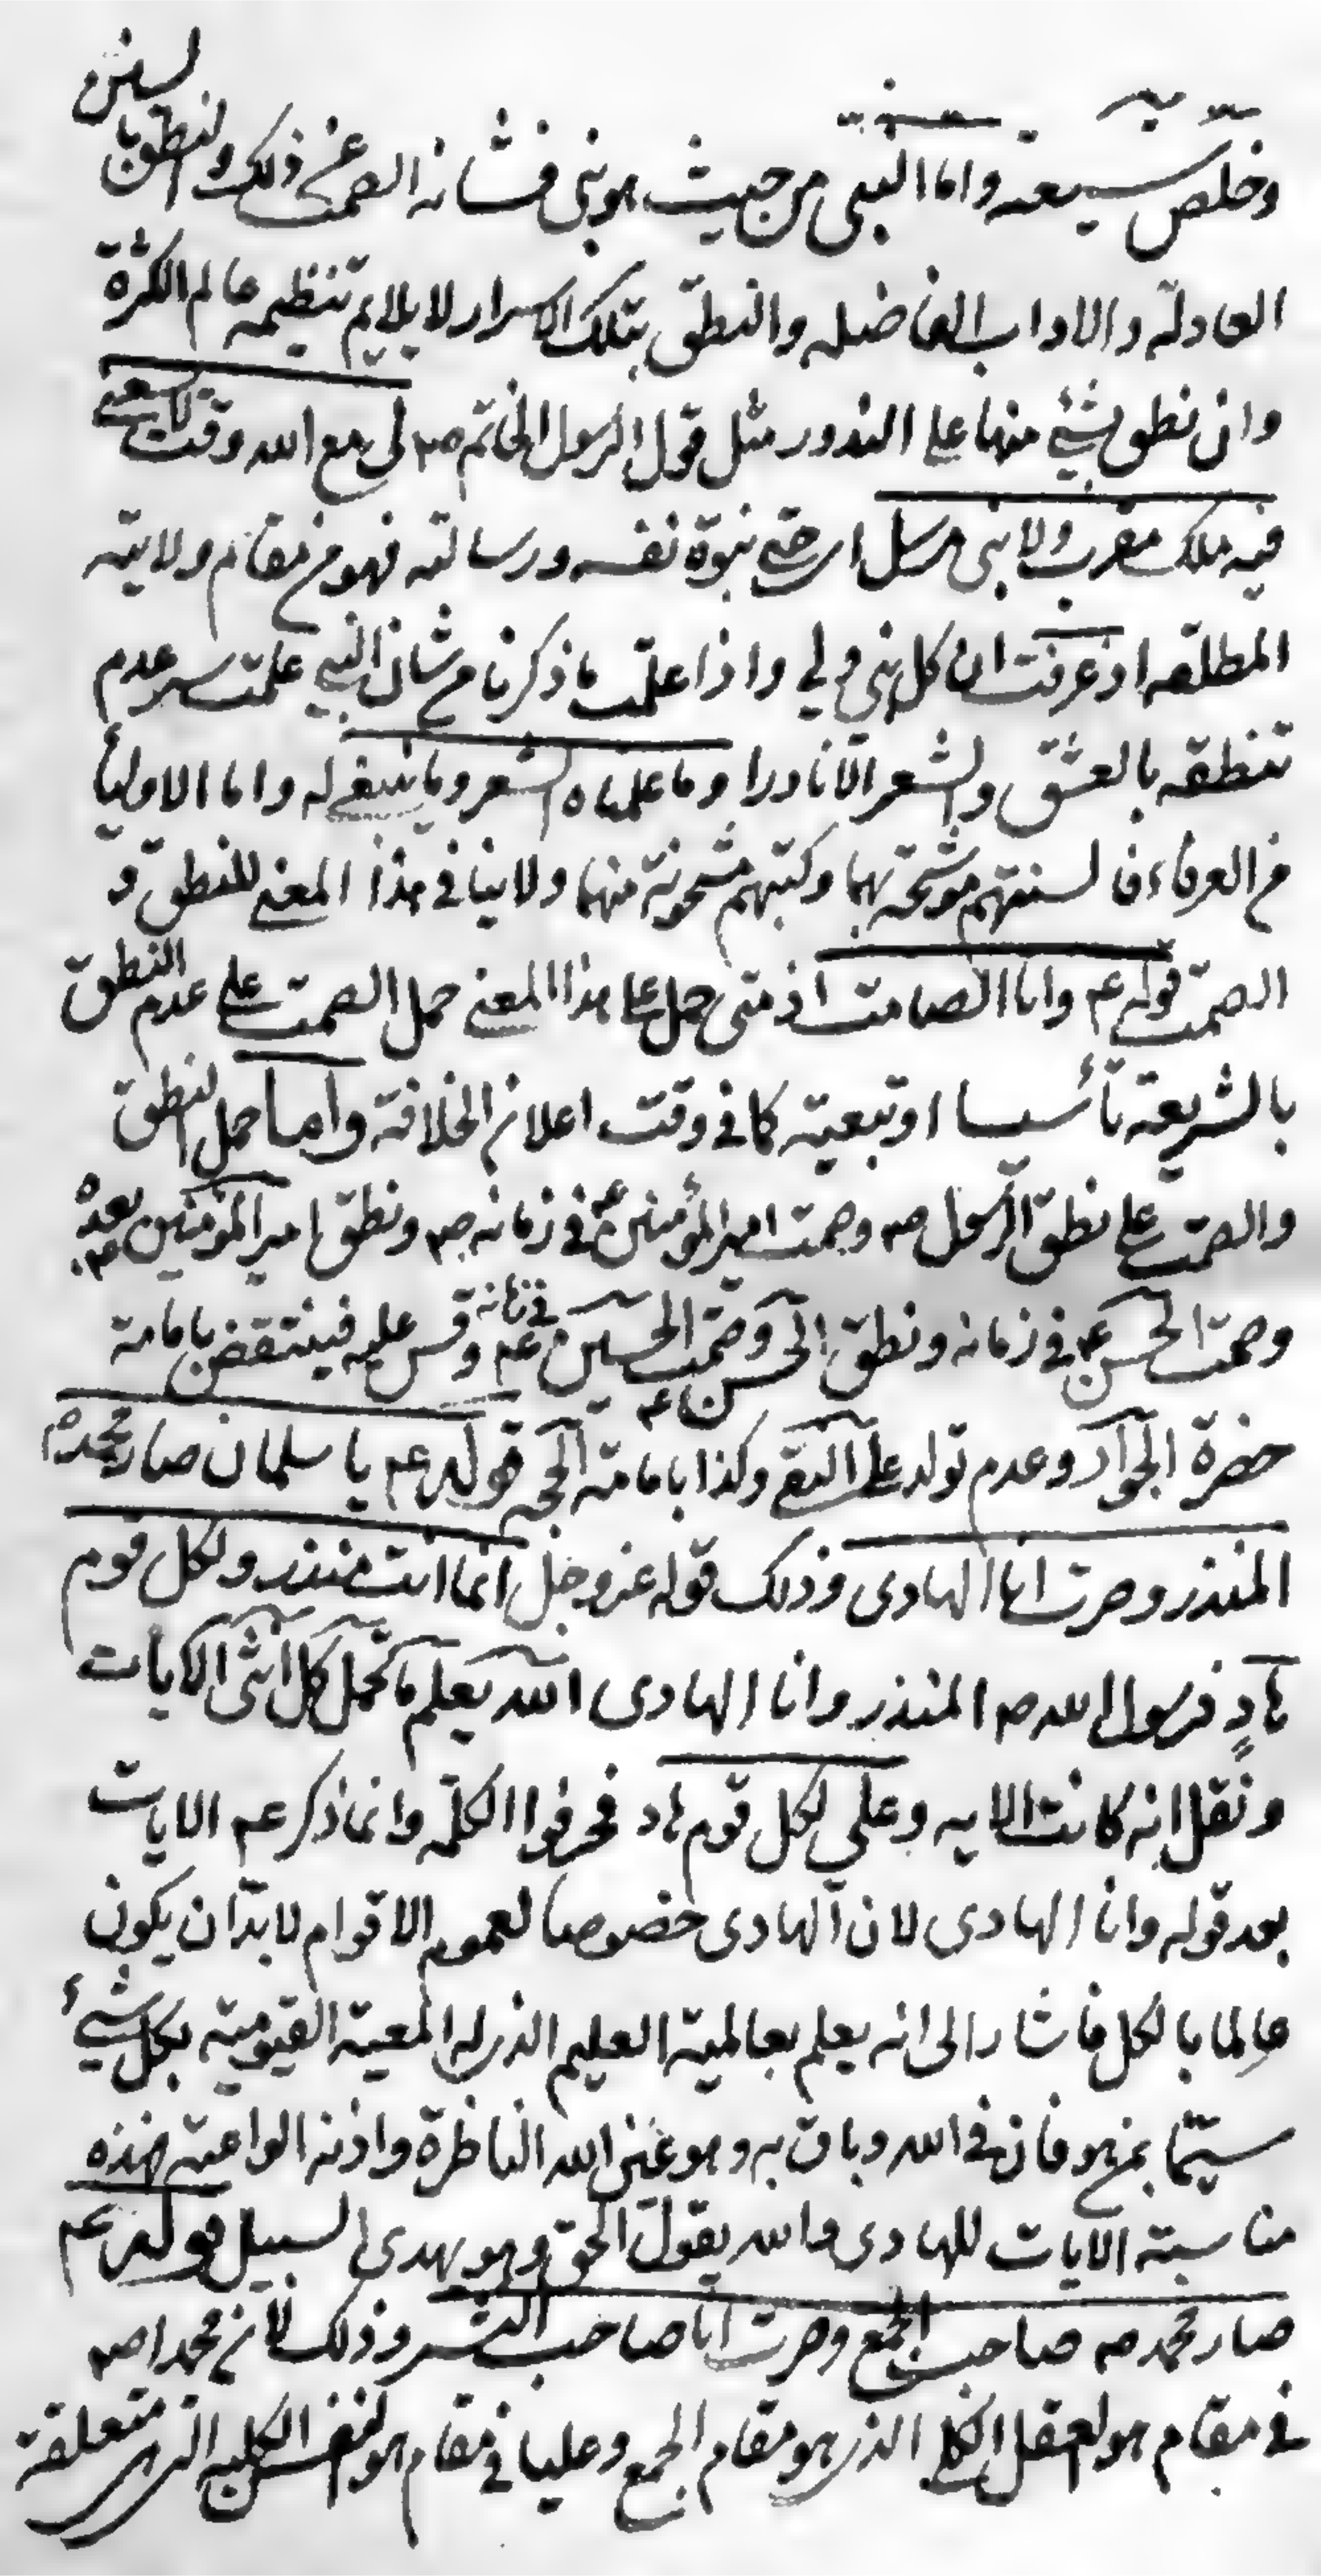 وخلّص شيعته واما النبى من حيث هو نبى فشانه الصمت عن ذلك والنطق بالسنن
العادلة والاداب الفاضله والنطق بتلك الاسرار لا يلايم تنظيمه عالم الكثرة
وان نطق بشئ منها على الندور مثل قول الرسول الخاتم ص لى مع الله وقت لا يسعنى
فيه ملك مقرب ولا نبى مرسل اى حتى نبوة نفسه ورسالته فهو من مقام ولايته
المطلقه اذ عرفت ان كل نبى ولي واذا علمت ما ذكرنا من شان النبي علمت سر عدم
تنطقه بالعشق والشعر الّا نادرا وما علمناه الشعر وما ينبغى له واما الاولياء
من العرفاء فالسنتهم موشحة بهما وكتبهم مشحونة منهما ولا ينافى هذا المعنى للنطق و
الصمت قوله ع وانا الصامت اذ متى حمل على هذا المعنى حمل الصمت على عدم النطق
بالشريعة تأسيسا او تبعية كما فى وقت اعلان الخلافة واما حمل النطق
والصمت على نطق الرسول ص وصمت امير المؤمنين ع فى زمانه ص ونطق امير المؤمنين بعده ص
وصمت الحسن ع فى زمانه ونطق الحسن ع وصمت الحسين ع فى زمانه وقس عليه فينتقض بامامة
حضرة الجواد وعدم تولد على النقى وكذا بامامة الحجة قوله ع يا سلمان صار محمد ص
المنذر وصرت انا الهادى وذلك قوله عز وجل انما انت منذر ولكل قوم
هادٍ فرسول الله ص المنذر وانا الهادى الله يعلم ما تحمل كل انثى الآيات
ونقل انه كانت الايه وعلي لكل قوم هاد فحرفوا الكلمه وانما ذكر ع الايات
بعد قوله وانا الهادى لان الهادى خصوصا لعموم الاقوام لا بدّ ان يكون
عالما بالكل فاشار الى انه يعلم بعالمية العليم الذى له المعية القيومية بكل شئ
سيّما بمن هو فان فى الله وباق به وهو عين الله الناظرة واذنه الواعية فهذه
مناسبة الايات للهادى والله يقول الحق وهو يهدى السبيل قوله ع
صار محمد ص صاحب الجمع وصرت انا صاحب النشر وذلك لان محمدا ص
فى مقام هو العقل الكلى الذى هو مقام الجمع وعليا فى مقام هو النفس الكليه التى هى متعلقة